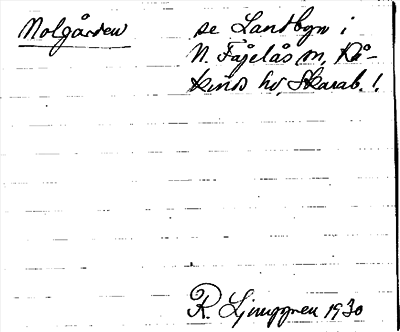 Nolgården
se Landbyn i
N. Fågelås sn, Kå-
kinds hd, Skarab. l.
R. Ljunggren 1930